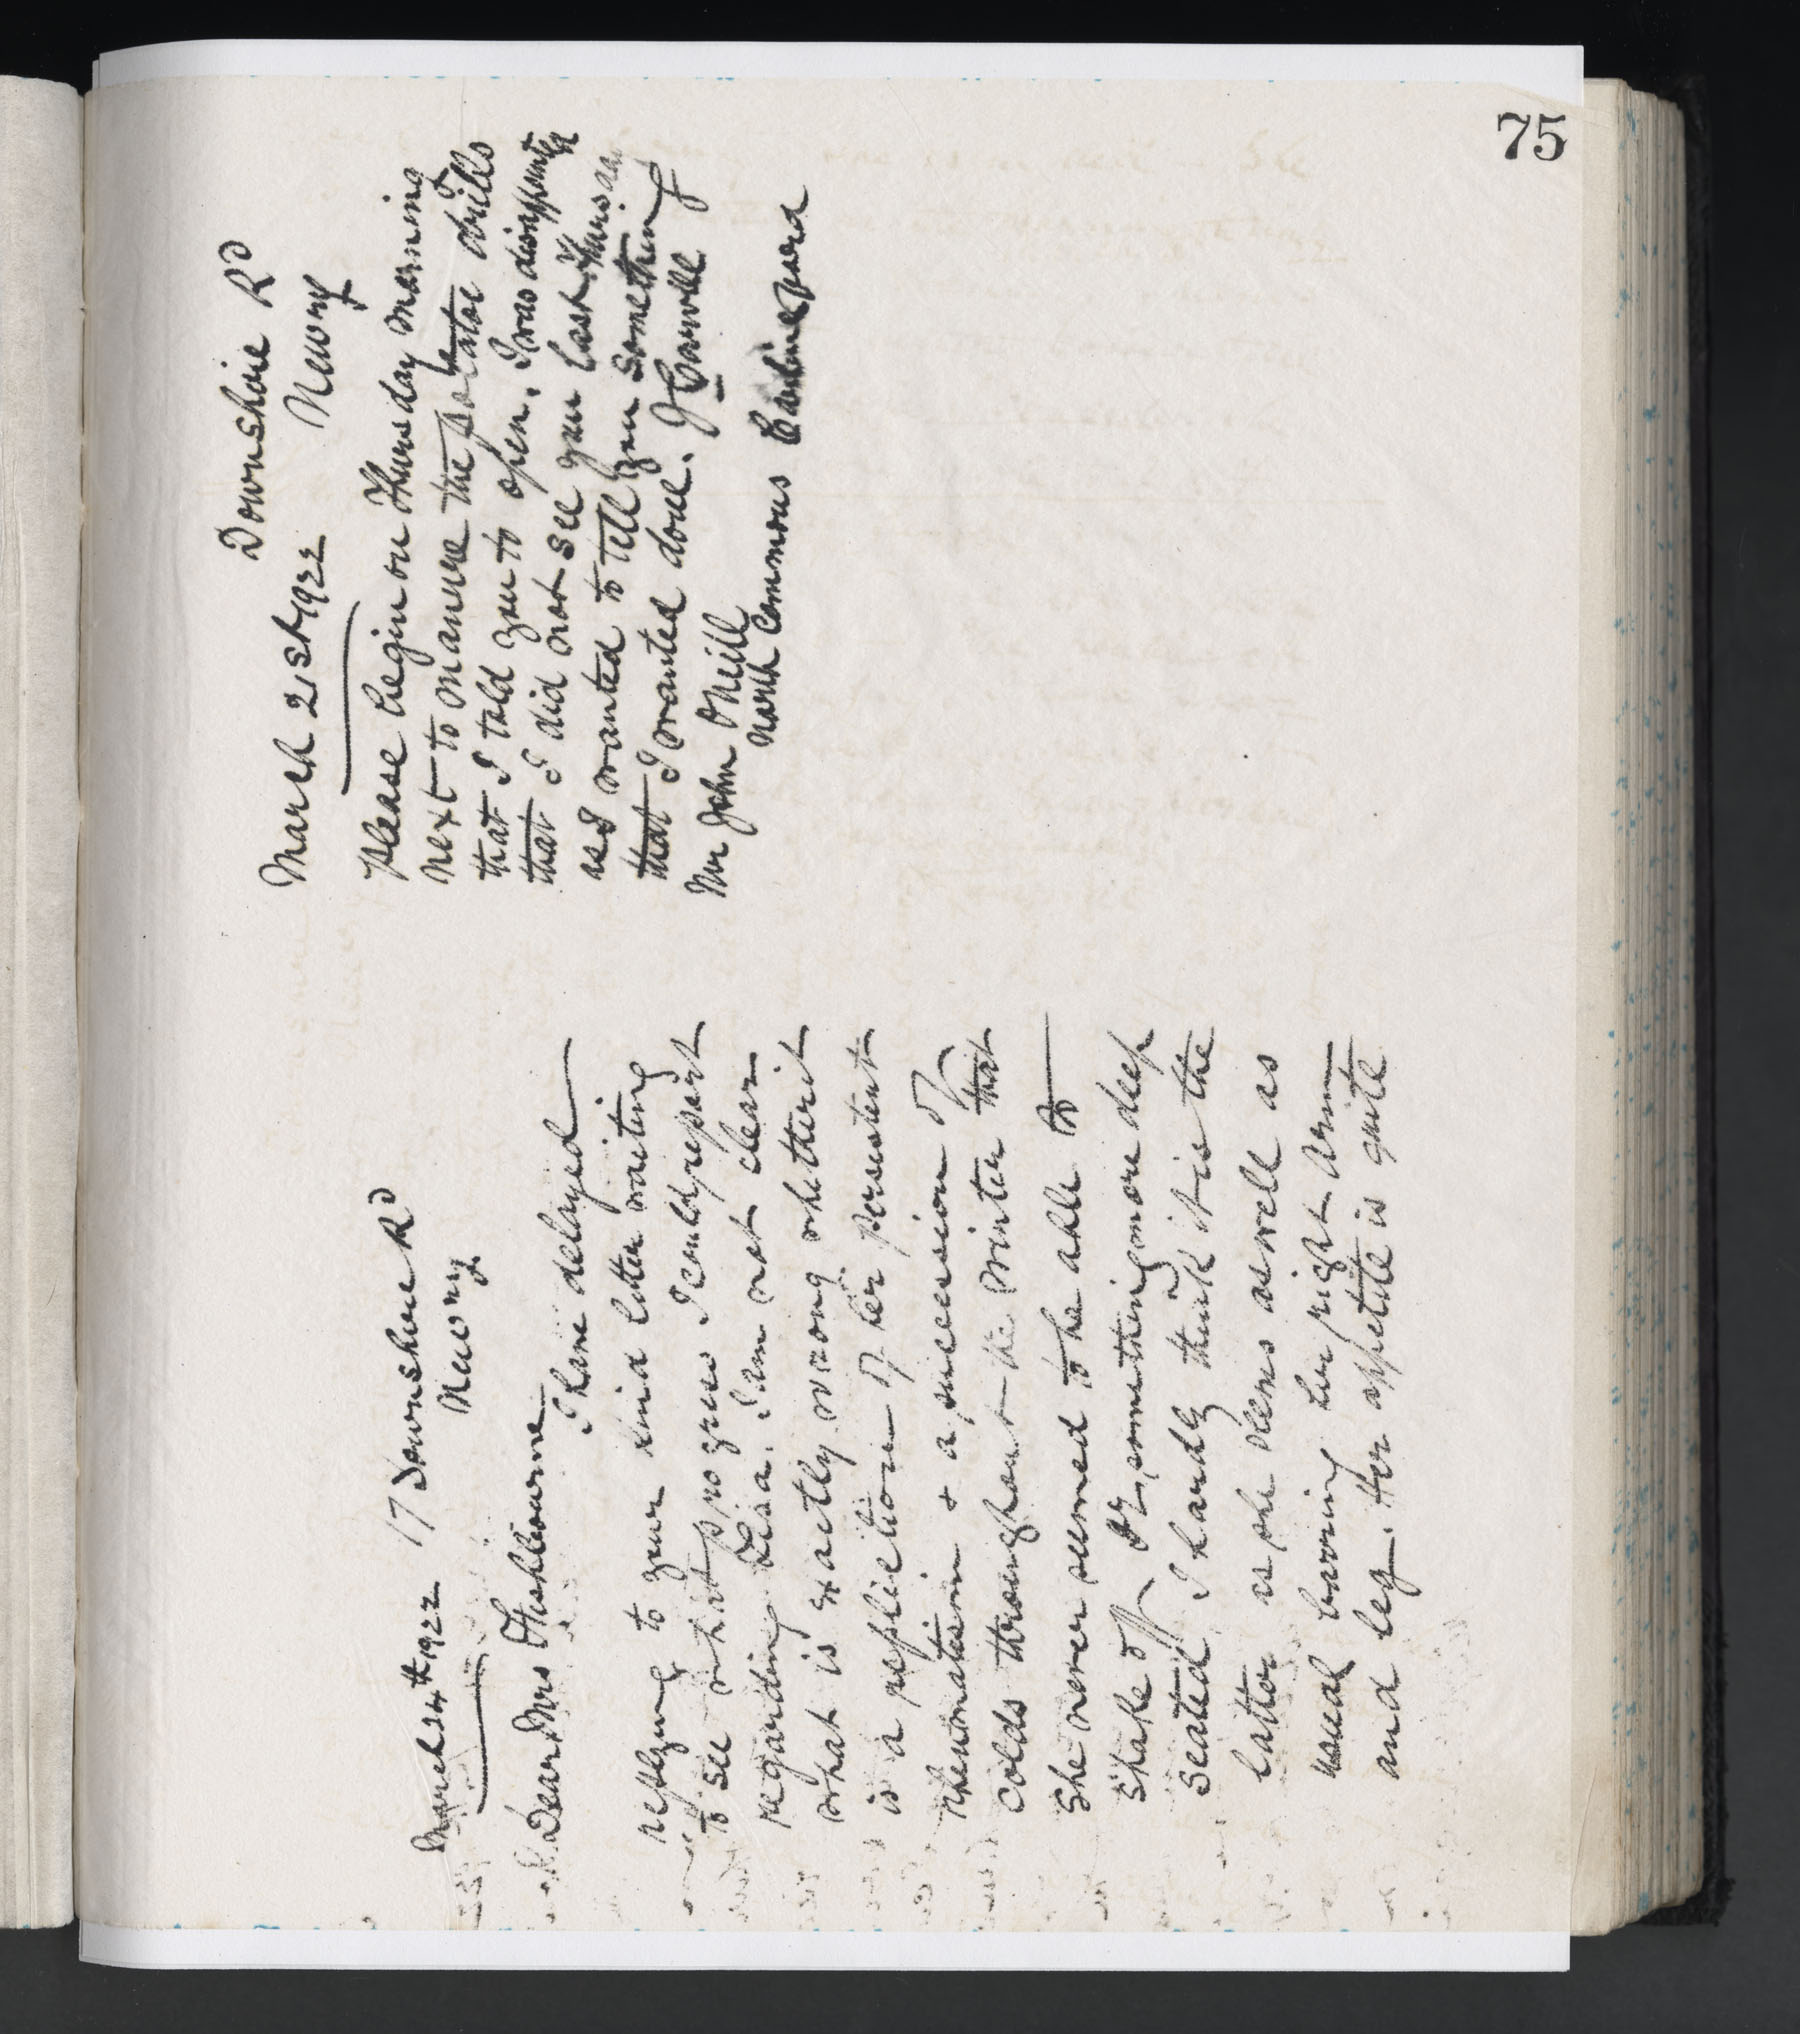 75
Downshire Rd
March 21st 1922 Newry
Please begin on Thursday morning
next to manure the potatoe drills
that I told you to open. I was disappointed
that I did not see you last Thursday
as I wanted to tell you something
that I wanted done. J Carwell
Mr John ONeill
North Commons Carlingford
March 24th 1922 17 Downshire Rd
Newry.
Dear Mrs Fishbourne
I have delayed
replying to your kind letter waiting
to see what progress I could report
regarding Lisa. I am not clear
what is exactly wrong whether it
is a repetition of her persistent
rheumatism + a succession of
colds throughout the winter that
She never seemed to be able to
shake off or something more deep
seated I hardly think it is the
latter as she seems as well as
usual barring her right arm
and leg. Her appetite is quite